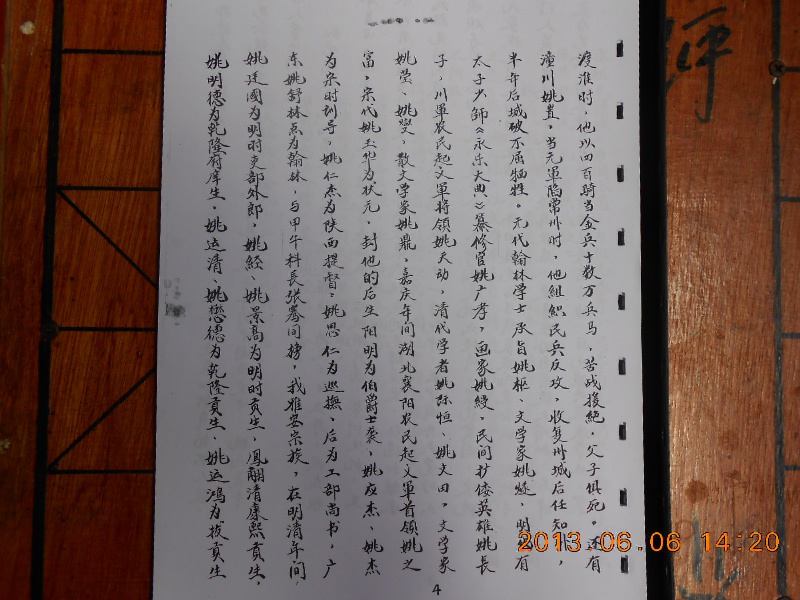 渡淮时，他以四百骑当金兵十数万兵马，苦战援绝，父子俱死。还有
潼川姚訔，当元军陷常州时，他组织民兵反攻，收复州城后任知州，
半年后城破不屈牺牲。元代翰林学士承旨姚枢、文学家姚燧，明代有
太子少师《永乐大典》纂修官姚广孝，画家姚绶，民间抄倭英雄姚长
子，川军农民起义军将领姚天动，清代学者姚际恒、姚文田，文学家
姚莹、姚燮，散文学家姚鼐，嘉庆年间湖北襄阳农民起义军首领姚之
富，宋代姚玉华为状元，封他的后生阳明为伯爵士袭，姚应杰、姚杰
为宋时训导，姚仁杰为陕西提督，姚思仁为巡抚，后为工部尚书，广
东姚舒林点为翰林，与甲午科长张謇同榜，我雅安宗族，在明清年间，
姚廷国为明时吏部外郎，姚经、姚景高为明时贡生，凤翩清康熙贡生，
姚明德为乾隆府庠生，姚运清、姚懋德为乾隆贡生，姚运鸿为拔贡生
4
2013.06.06 14:20